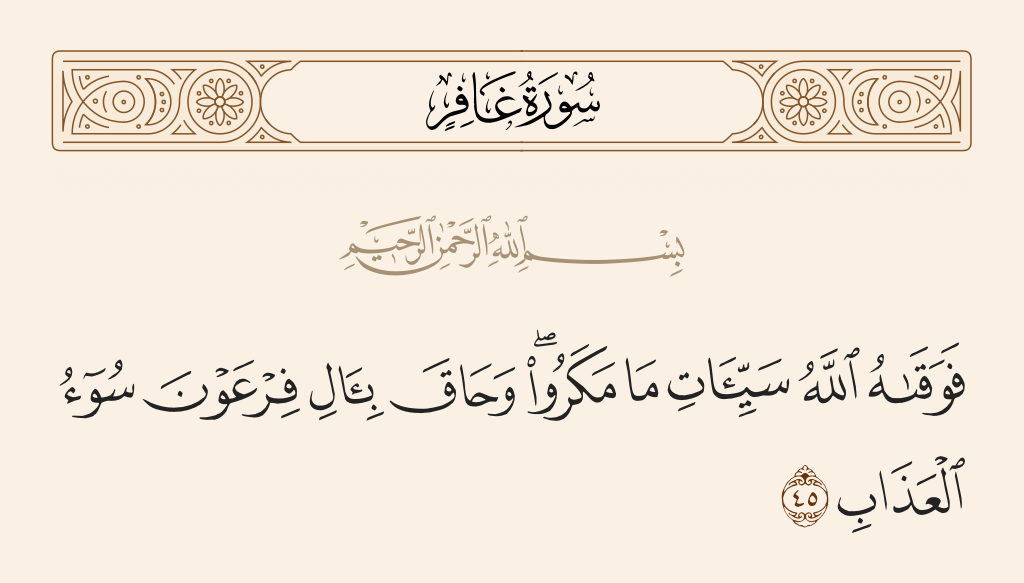 سُورَةُ غَافِرٍ
بِسْمِ ٱللَّهِ ٱلرَّحْمَٰنِ ٱلرَّحِيمِ
فَوَقَىٰهُ ٱللَّهُ سَيِّـَٔاتِ مَا مَكَرُوا۟ ۖ وَحَاقَ بِـَٔالِ فِرْعَوْنَ سُوٓءُ
ٱلْعَذَابِ ٤٥